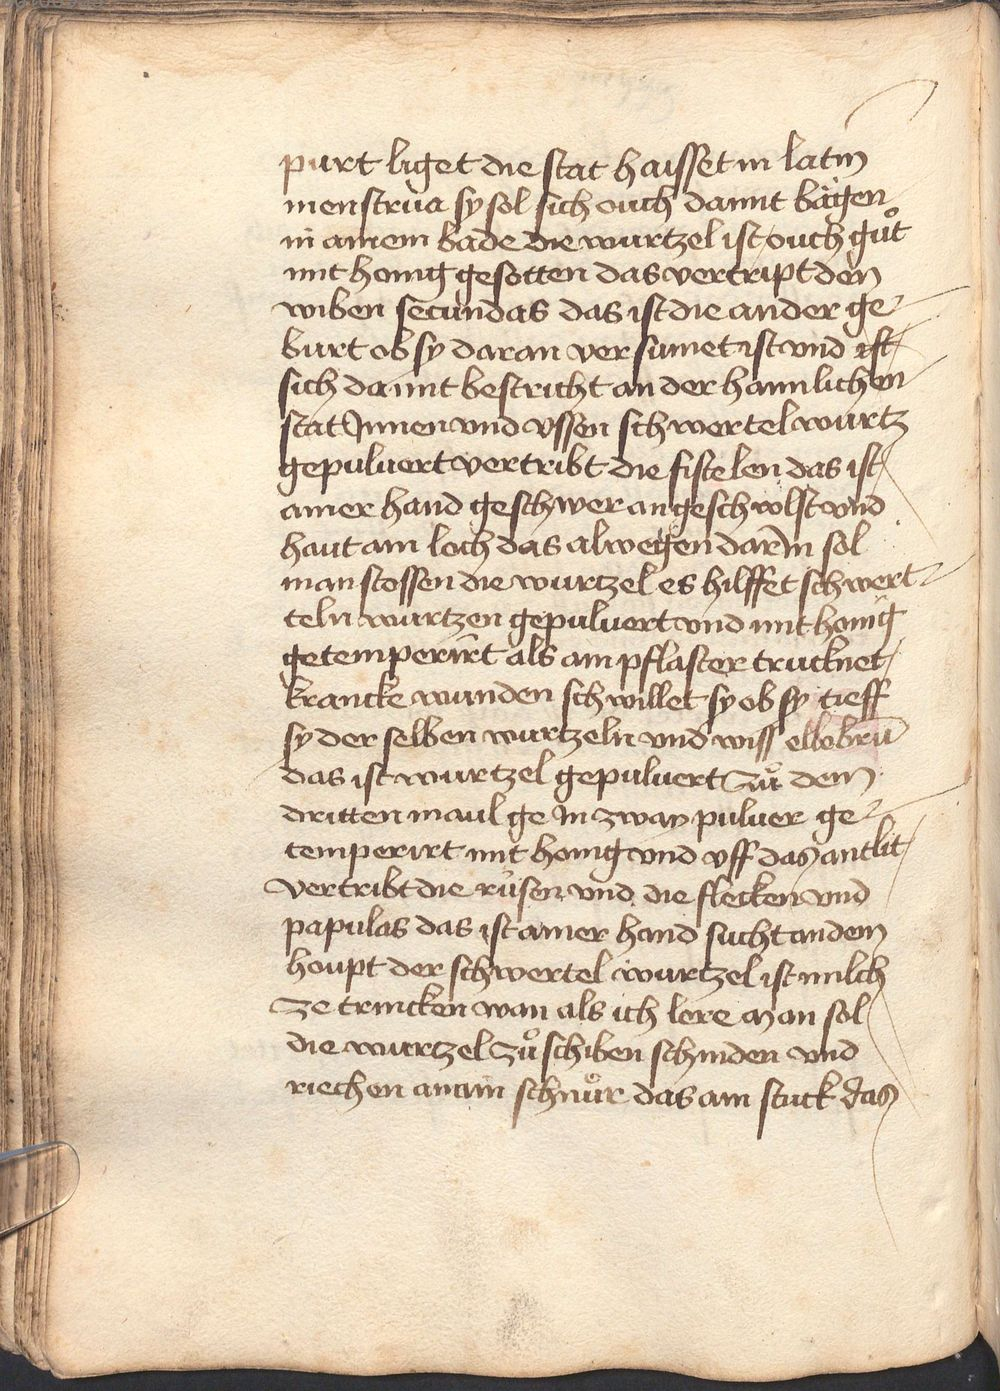 purt liget die stat haisset in latin
menstrua sy sol sich ouch damit bägen
in ainem bade die wurtzel ist ouch guͦt
mit honig gesotten das vertript den
wiben secundas das ist die ander ge-
burt ob sy daran versumet ist vnd ist
sich damit bestricht an der haimlichen
stat Innen vnd vssen schwertelwurtz
gepuluert vertribt die fistelen das ist
ainer hand geschwer an geschwlst vnd
haut ain loch das alwegen darin sol
man stossen die wurtzel es hilffet schwert-
teln wurtzen gepuluert vnd mit honig
getemperirt als ain pflaster trucknet
krancke wunden schwillet sy ob sy tieff
sy der selben wurtzeln vnd wiss ellebrū
das ist wurtzel gepuluert Zuͦ dem
dritten maul ge In zway puluer ge-
temperirt mit honig vnd vff das antlit
vertribt die rusen vnd die flecken vnd
papulas das ist ainer hand sucht an dem
houpt der schwertel wurtzel ist milch
ze trincken wan als ich lere man sol
die wurtzel zuͦ schiben schniden vnd
riechen an ain schnuͦr das ain stuck das